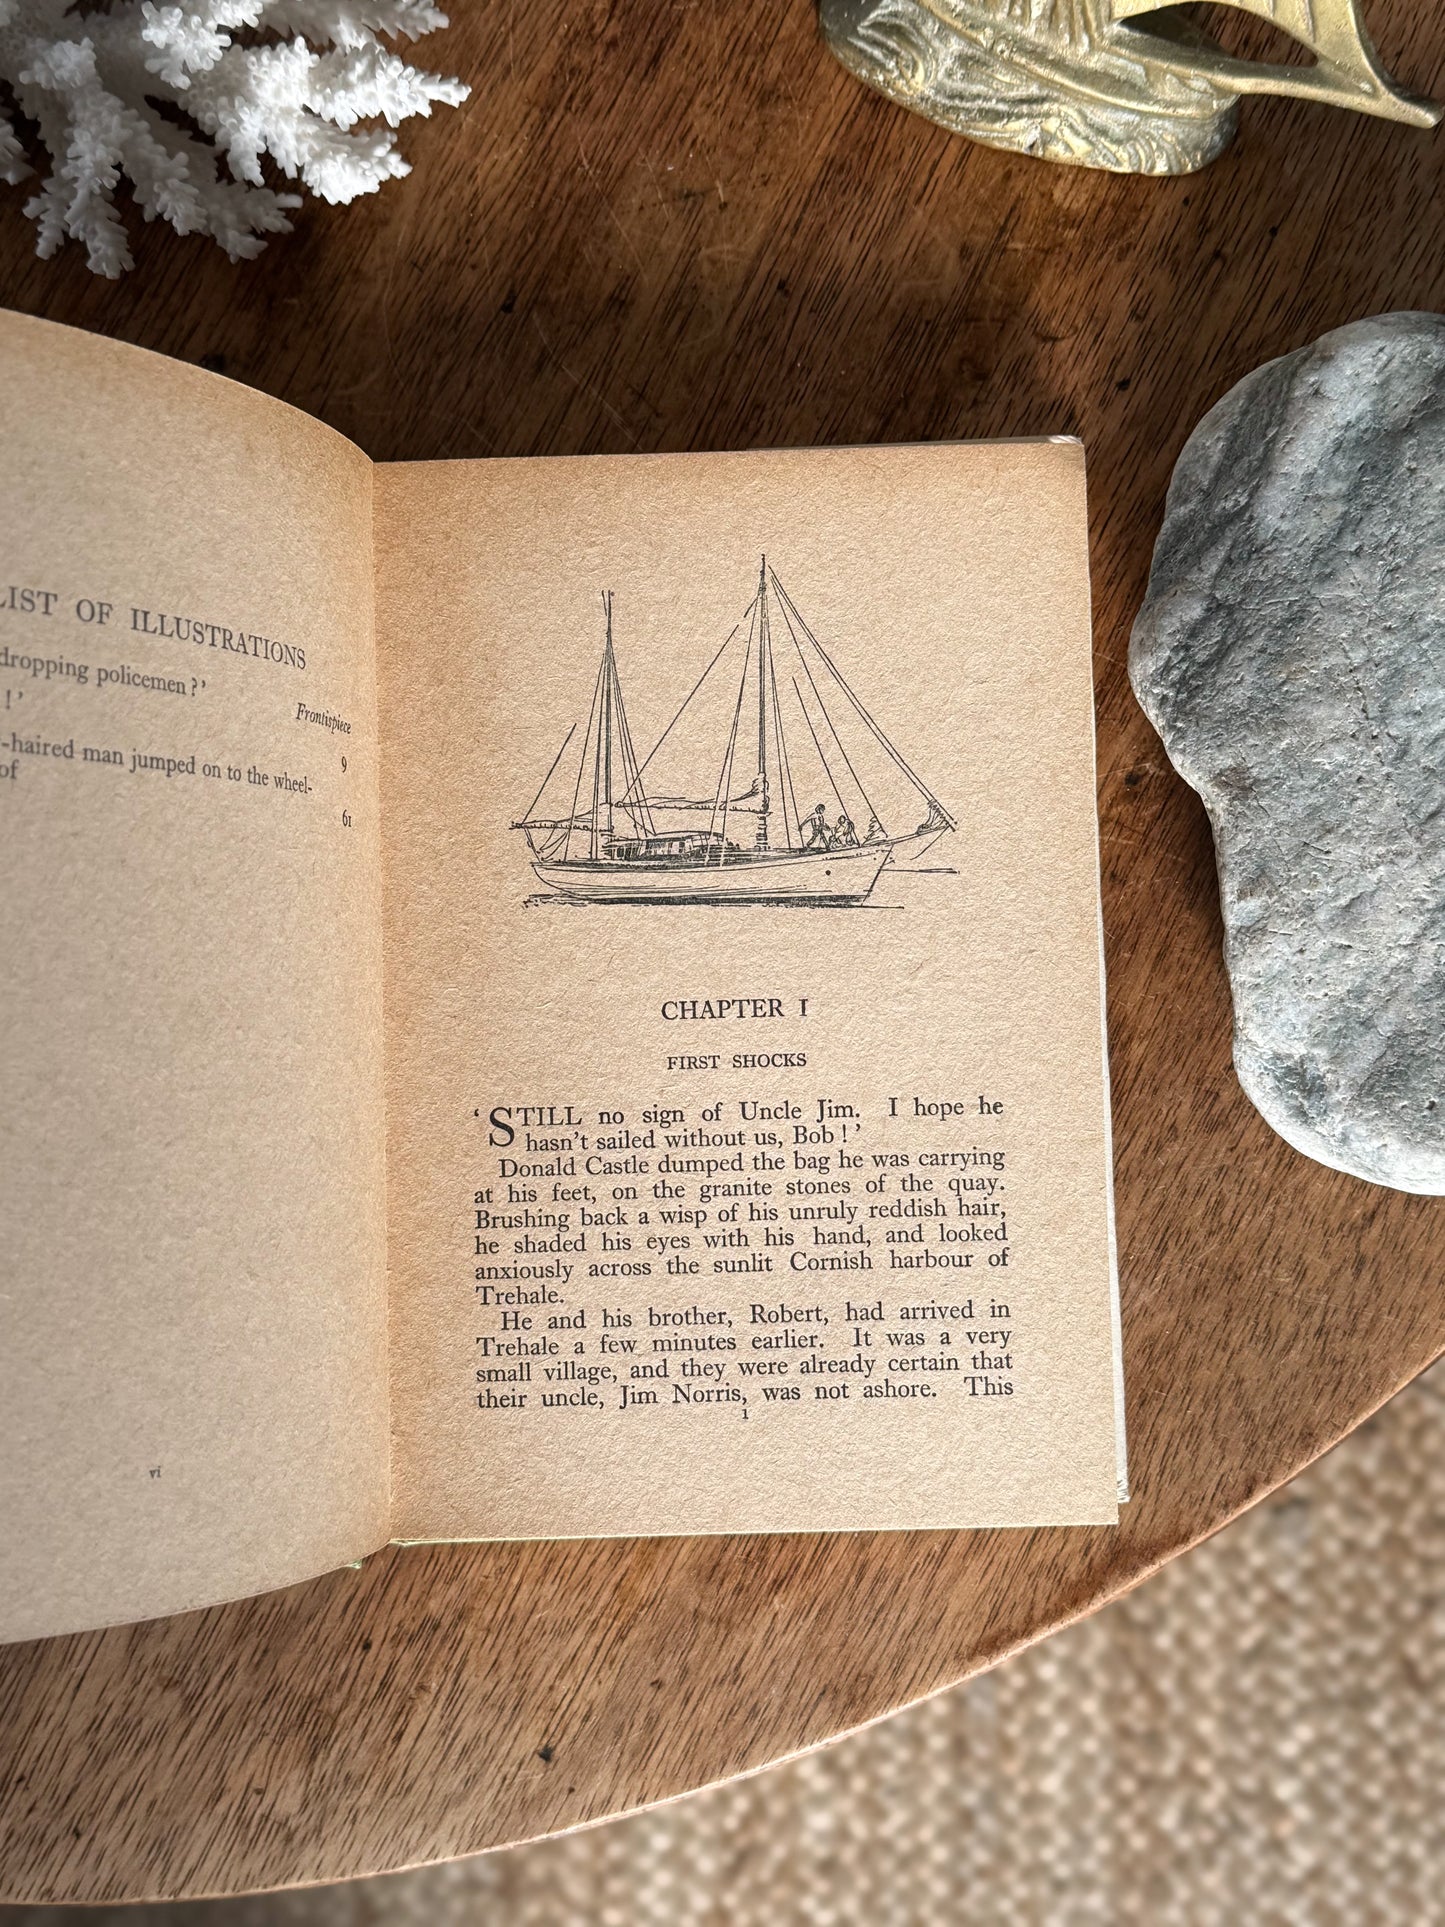 LIST OF ILLUSTRATIONS
dropping policemen?'
Frontispiece
!'
9
-haired man jumped on to the wheel-
of
61
vi
CHAPTER I
FIRST SHOCKS
‘STILL no sign of Uncle Jim. I hope he
hasn't sailed without us, Bob!’
Donald Castle dumped the bag he was carrying
at his feet, on the granite stones of the quay.
Brushing back a wisp of his unruly reddish hair,
he shaded his eyes with his hand, and looked
anxiously across the sunlit Cornish harbour of
Trehale.
He and his brother, Robert, had arrived in
Trehale a few minutes earlier. It was a very
small village, and they were already certain that
their uncle, Jim Norris, was not ashore. This
1